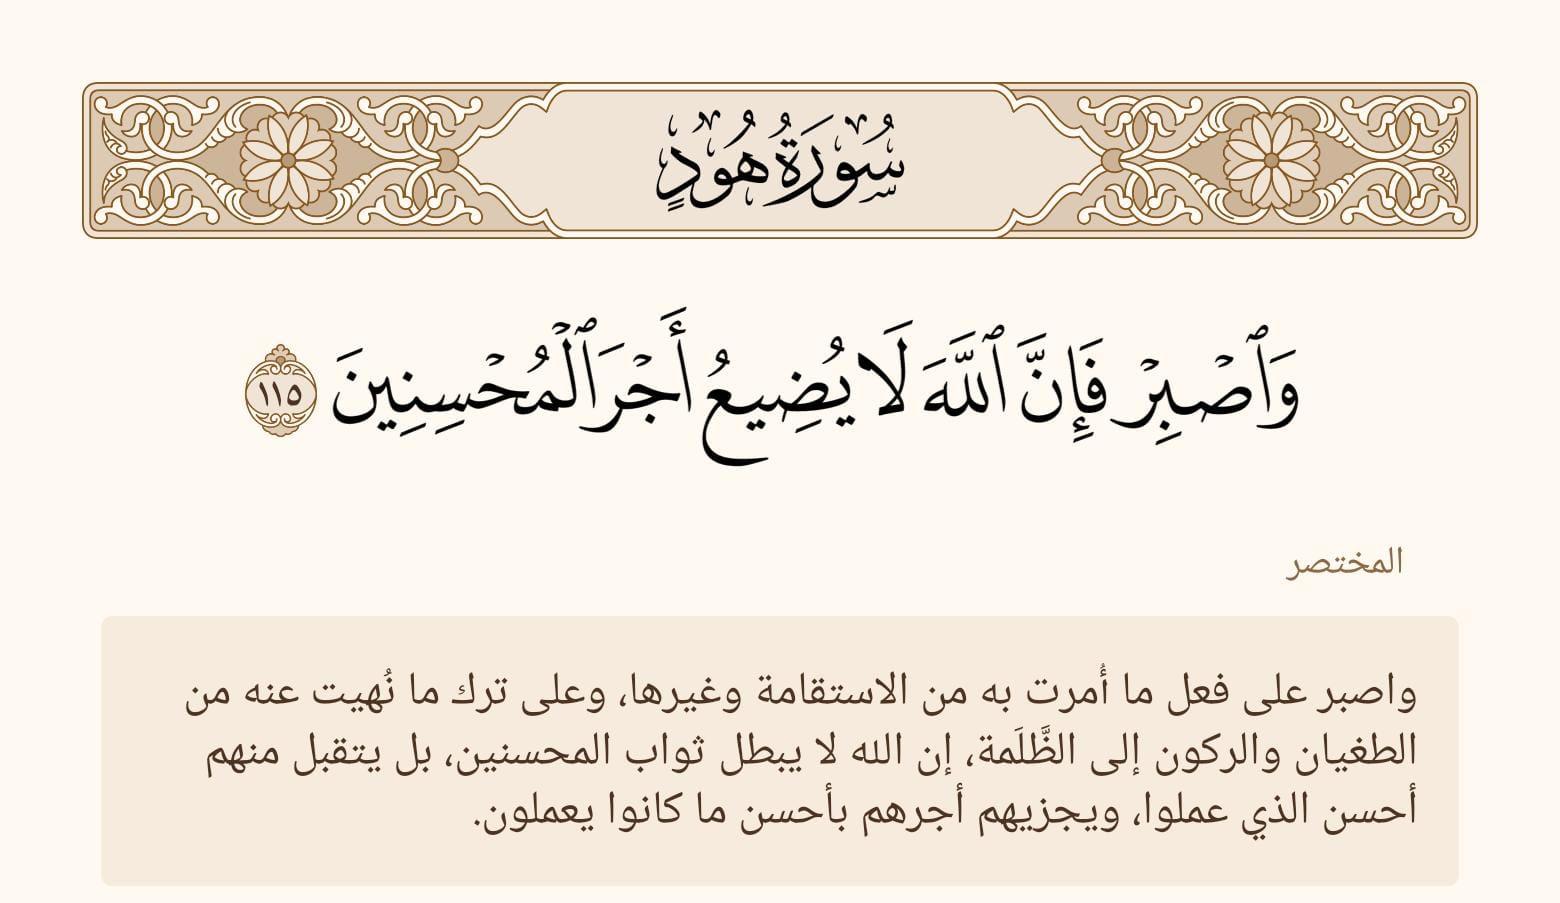 سُورَةُ هُودٍ
وَٱصْبِرْ فَإِنَّ ٱللَّهَ لَا يُضِيعُ أَجْرَ ٱلْمُحْسِنِينَ ١١٥
المختصر
واصبر على فعل ما أُمرت به من الاستقامة وغيرها، وعلى ترك ما نُهيت عنه من
الطغيان والركون إلى الظَّلَمة، إن الله لا يبطل ثواب المحسنين، بل يتقبل منهم
أحسن الذي عملوا، ويجزيهم أجرهم بأحسن ما كانوا يعملون.